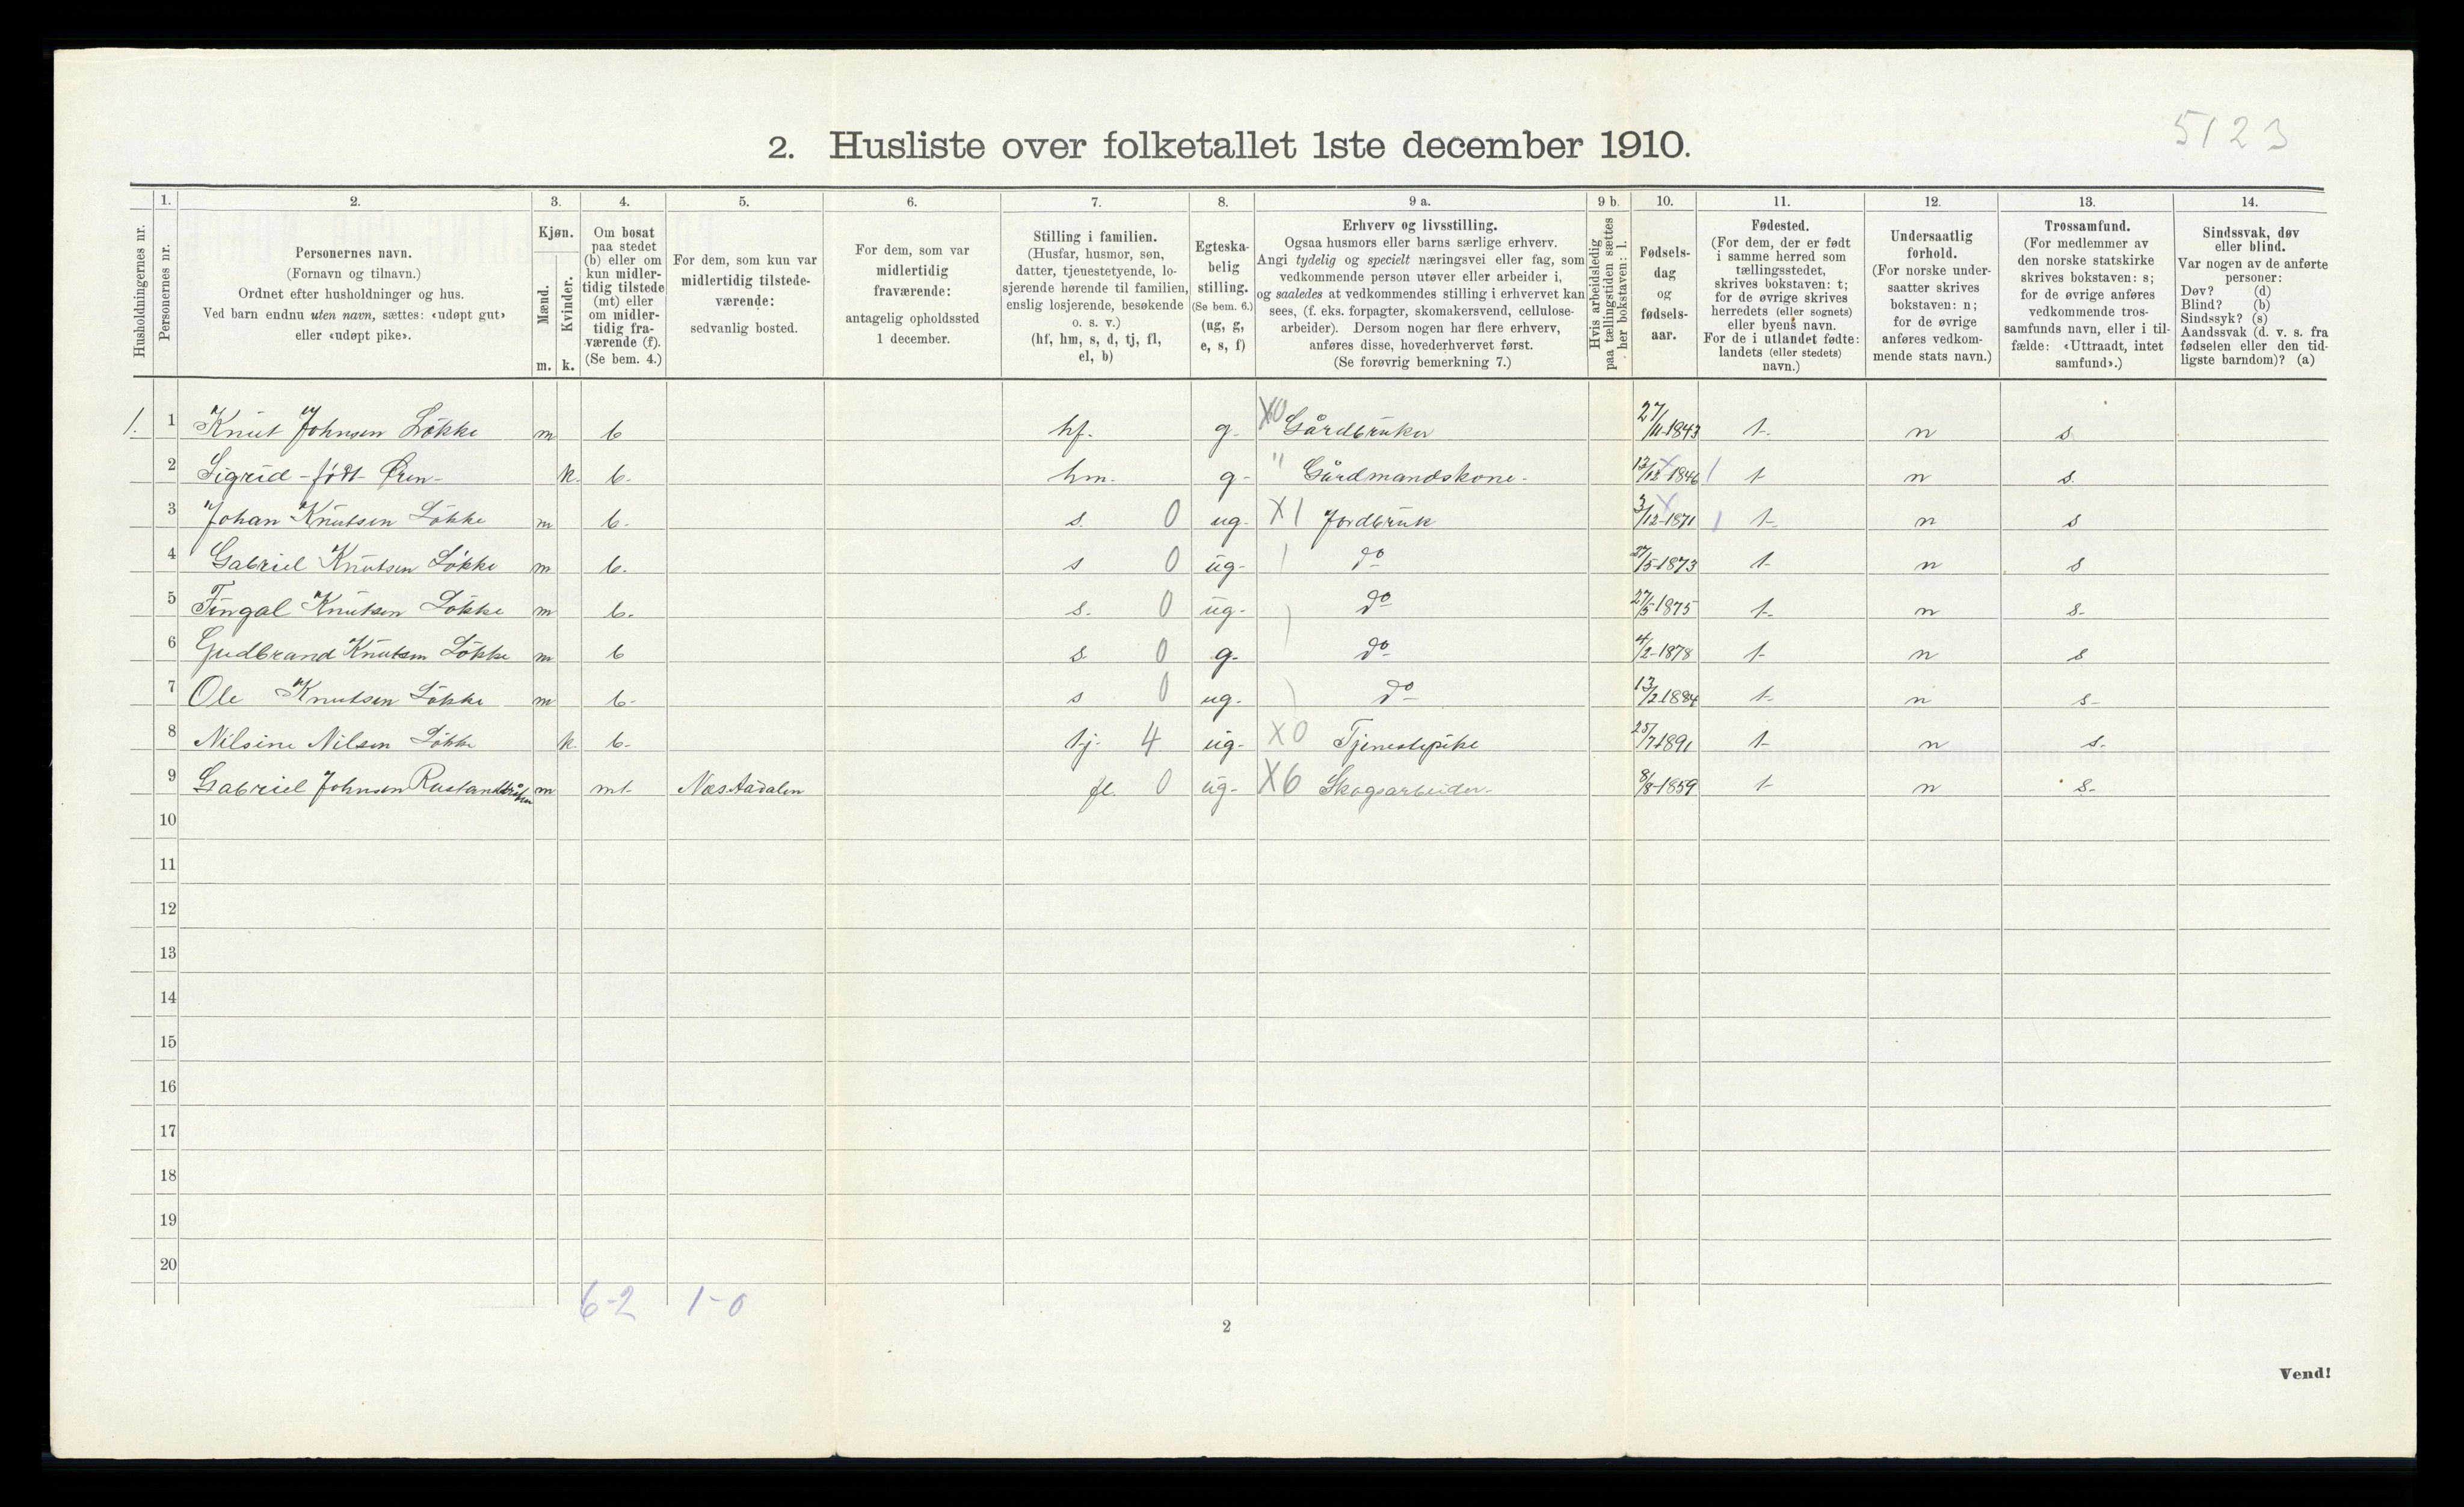 5123
2. Husliste over folketallet 1ste december 1910.
1. 2. 3. 4. 5. 6. 7. 8. 9 a. 9 b. 10. 11. 12. 13. 14.
Husholdningernes nr.
Personernes nr.
Personernes navn.
(Fornavn og tilnavn.)
Ordnet efter husholdninger og hus.
Ved barn endnu uten navn, sættes: «udøpt gut»
eller «udøpt pike».
Kjøn.
Mænd.
Kvinder.
m. k.
Om bosat
paa stedet
(b) eller om
kun midler-
tidig tilstede
(mt) eller
om midler-
tidig fra-
værende (f).
(Se bem. 4.)
For dem, som kun var
midlertidig tilstede-
værende:
sedvanlig bosted.
For dem, som var
midlertidig
fraværende:
antagelig opholdssted
1 december.
Stilling i familien.
(Husfar, husmor, søn,
datter, tjenestetyende, lo-
sjerende hørende til familien,
enslig losjerende, besøkende
o. s. v.)
(hf, hm, s, d, tj, fl,
el, b)
Egteska-
belig
stilling.
(Se bem. 6.)
(ug, g,
e, s, f)
Erhverv og livsstilling.
Ogsaa husmors eller barns særlige erhverv.
Angi tydelig og specielt næringsvei eller fag, som
vedkommende person utøver eller arbeider i,
og saaledes at vedkommendes stilling i erhvervet kan
sees, (f. eks. forpagter, skomakersvend, cellulose-
arbeider). Dersom nogen har flere erhverv,
anføres disse, hovederhvervet først.
(Se forøvrig bemerkning 7.)
Hvis arbeidsledig
paa tællingstiden sættes
her bokstaven: l.
Fødsels-
dag
og
fødsels-
aar.
Fødested.
(For dem, der er født
i samme herred som
tællingsstedet,
skrives bokstaven: t;
for de øvrige skrives
herredets (eller sognets)
eller byens navn.
For de i utlandet fødte:
landets (eller stedets)
navn.)
Undersaatlig
forhold.
(For norske under-
saatter skrives
bokstaven: n;
for de øvrige
anføres vedkom-
mende stats navn.)
Trossamfund.
(For medlemmer av
den norske statskirke
skrives bokstaven: s;
for de øvrige anføres
vedkommende tros-
samfunds navn, eller i til-
fælde: «Uttraadt, intet
samfund».)
Sindssvak, døv
eller blind.
Var nogen av de anførte
personer:
Døv? (d)
Blind? (b)
Sindssyk? (s)
Aandssvak (d. v. s. fra
fødselen eller den tid-
ligste barndom)? (a)
1. 1 Knut Johnsen Løkke m b hf. g. X0 Gårdbruker 27/11-1843 t. n s.
2 Sigrid - født Øren - k. b. hm. g- " Gårdmandskone. 12/12-1846 t n s.
3 Johan Knutsen Løkke m b. s. 0 ug. X1 Jordbruk 3/12-1871 t. n s
4 Gabriel Knutsen Løkke m b. s 0 ug- do 27/5-1873 t n s
5 Fingal Knutsen Løkke m b. s. 0 ug- do 27/5-1875 t. n s.
6 Gudbrand Knutsen Løkke m b s. 0 g. do 4/2-1878 t n s
7 Ole Knutsen Løkke m b- s 0 ug. do 13/2-1884 t. n s-
8 Nilsine Nilsen Løkke k. b. tj. 4 ug- X0 Tjenestepike 25/7-1891 t n s.
9 Gabriel Johnsen m mt. Næs Aadalen fl. 0 ug- X6 Skogsarbeider- 8/8-1859 t n s-
10
11
12
13
14
15
16
17
18
19
20
6-2 1-0
2
Vend!